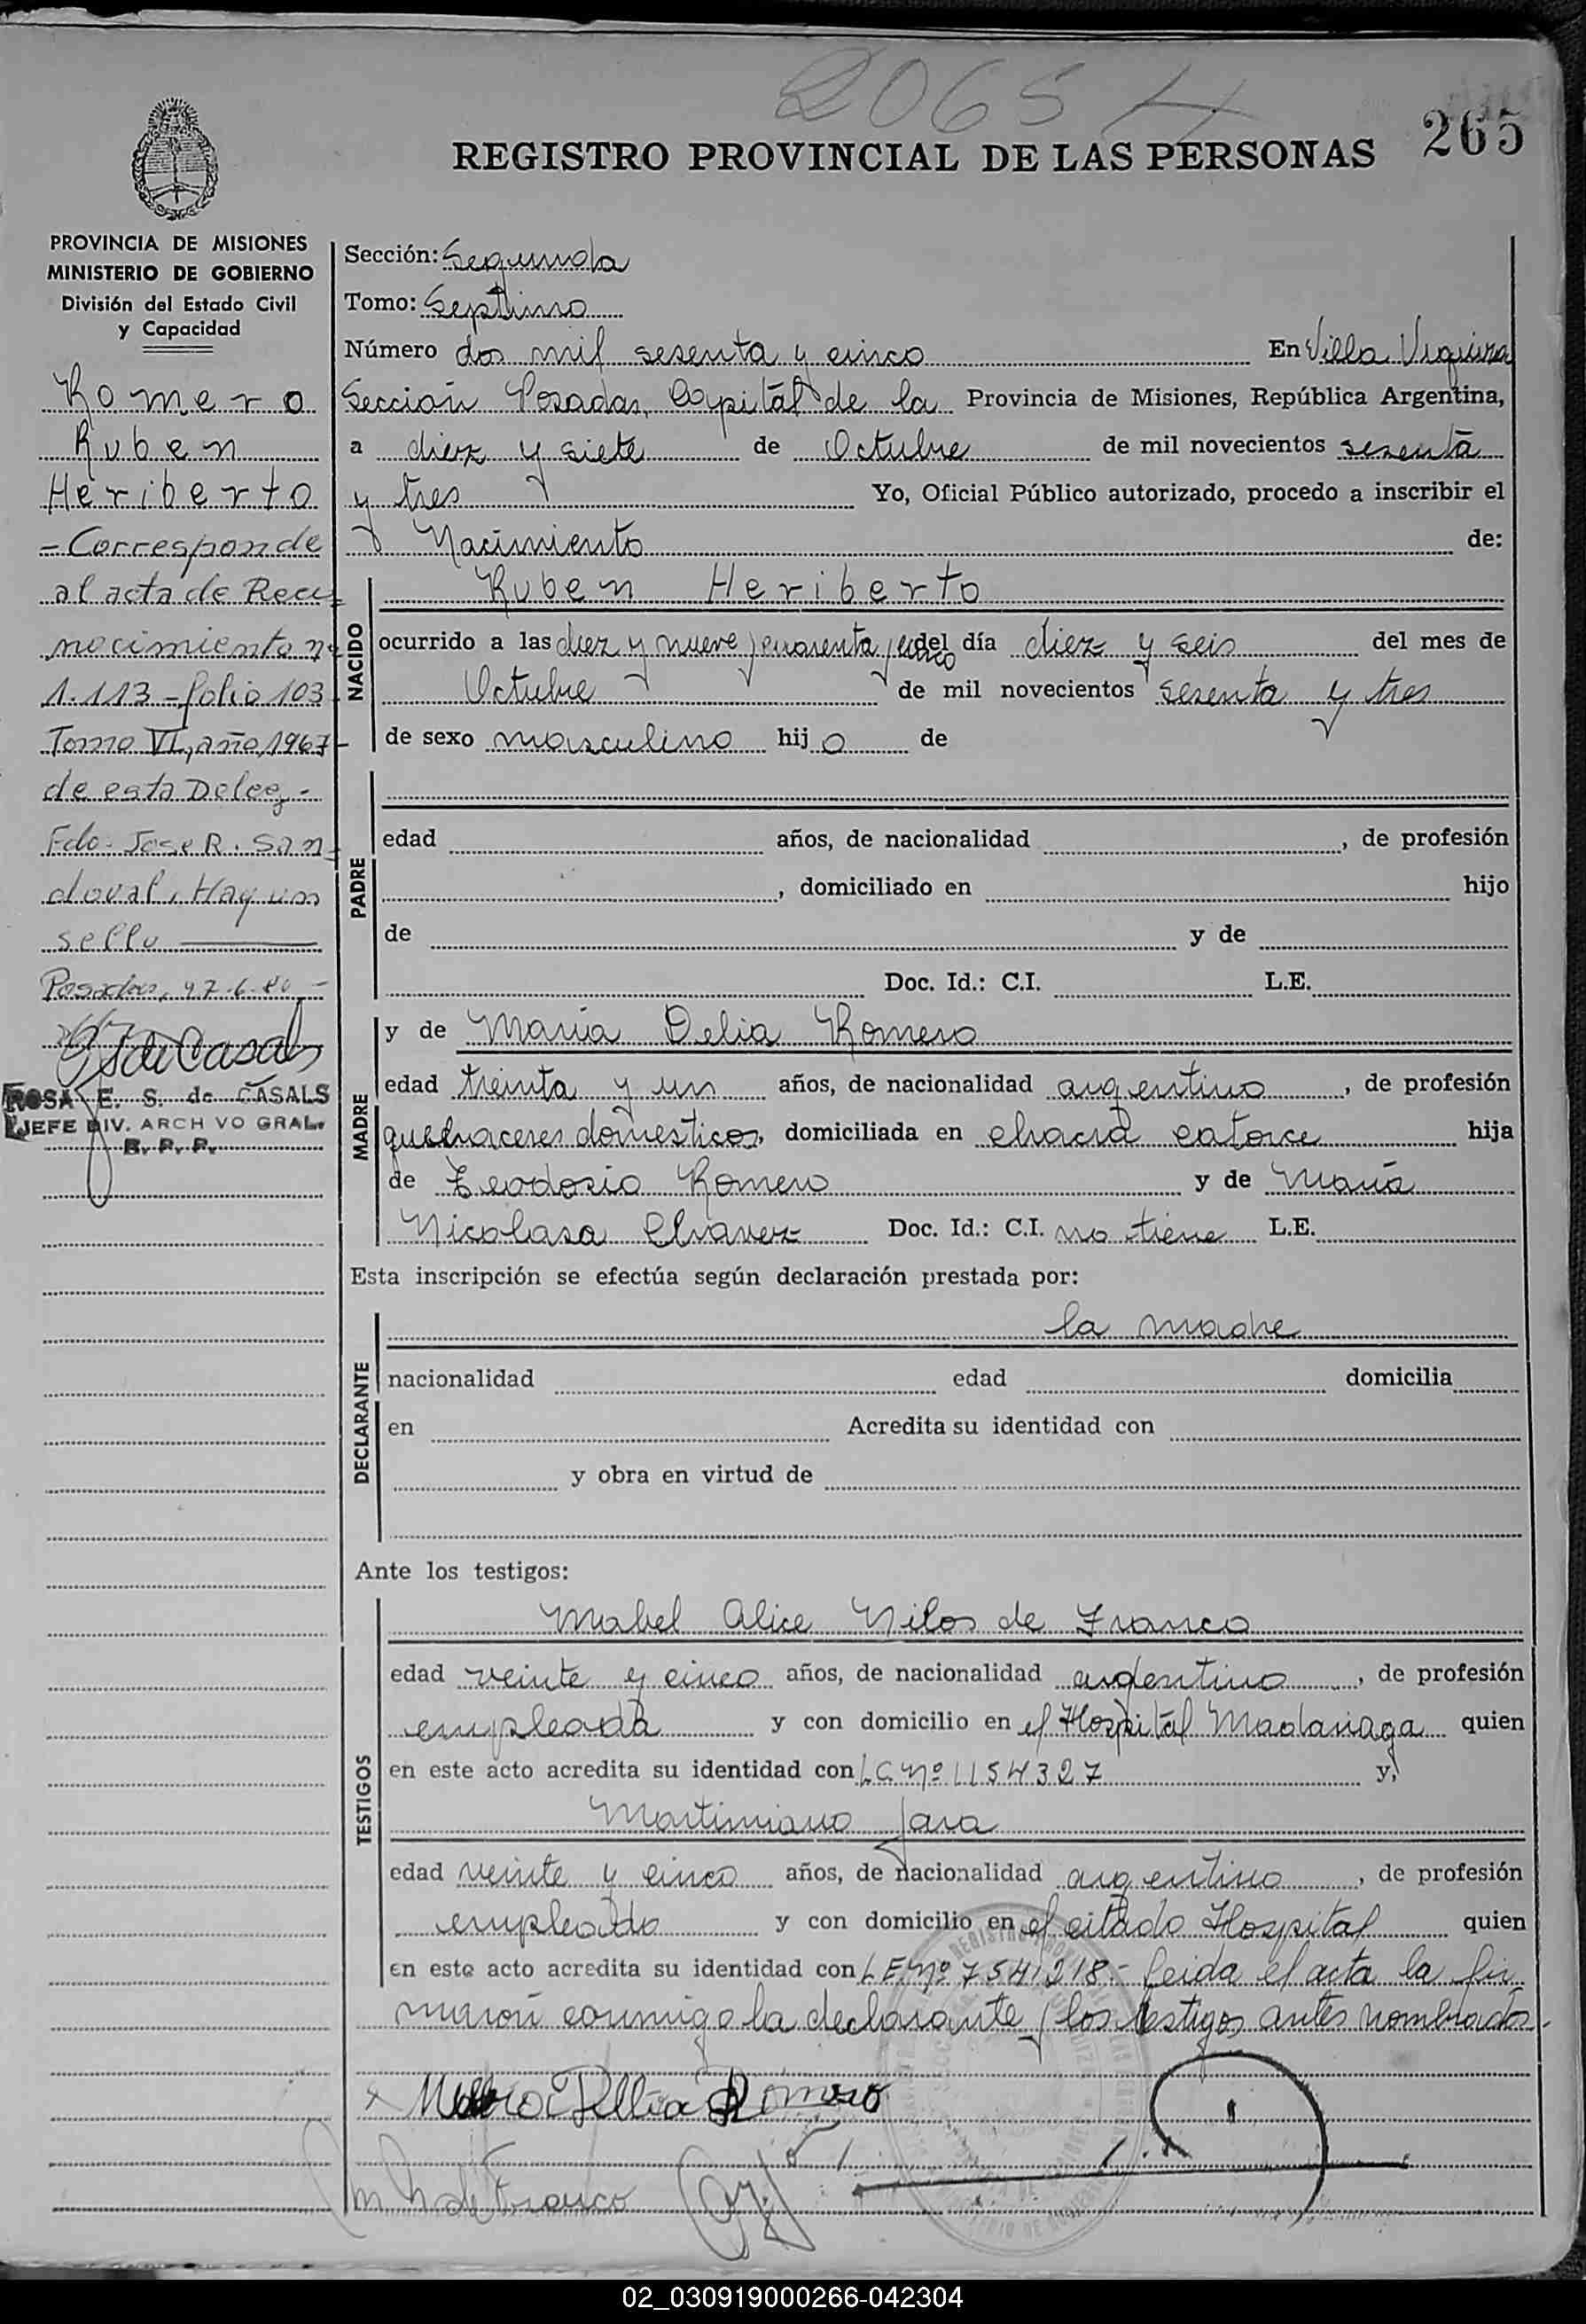 2065
265
REGISTRO PROVINCIAL DE LAS PERSONAS
PROVINCIA DE MISIONES
MINISTERIO DE GOBIERNO
División del Estado Civil
y Capacidad
Romero
Ruben
Heriberto
- Corresponde
al acta de Reco
nocimiento nº
1.113 - folio 103
Tomo VI, año 1967 -
de esta Deleg -
Fdo. Jose R. San
doval, Hay un
sello
Posadas, 27-6-80 -
ROSA E. S. de CASALS
JEFE DIV. ARCHIVO GRAL.
R. P. P.
Sección: Segunda
Tomo: Septimo
Número dos mil sesenta y cinco En Villa Urquiza
Sección Posadas, Capital de la Provincia de Misiones, República Argentina,
a diez y siete de Octubre de mil novecientos sesenta
y tres Yo, Oficial Público autorizado, procedo a inscribir el
Nacimiento de:
NACIDO
Ruben Heriberto
ocurrido a las diez y nueve y cuarenta y cinco del día diez y seis del mes de
Octubre de mil novecientos sesenta y tres
de sexo masculino hijo de
PADRE
edad años, de nacionalidad , de profesión
, domiciliado en hijo
de y de
Doc. Id.: C.I. L.E.
MADRE
y de María Delia Romero
edad treinta y un años, de nacionalidad argentino , de profesión
quehaceres domesticos, domiciliada en chacra catorce hija
de Teodosio Romero y de María
Nicolasa Chavez Doc. Id.: C.I. no tiene L.E.
Esta inscripción se efectúa según declaración prestada por:
DECLARANTE
la madre
nacionalidad edad domicilia
en Acredita su identidad con
y obra en virtud de
Ante los testigos:
TESTIGOS
Mabel Alice de Franco
edad veinte y cinco años, de nacionalidad argentino , de profesión
empleada y con domicilio en el Hospital Madariaga quien
en este acto acredita su identidad con LC Nº 1154327 y,
Martiniano Jara
edad veinte y cinco años, de nacionalidad argentino , de profesión
empleado y con domicilio en el citado Hospital quien
en este acto acredita su identidad con LE Nº 7541218.- Leida el acta la fir
maron conmigo la declarante y los testigos antes nombrados.
Romero
de Franco
02_030919000266-042304